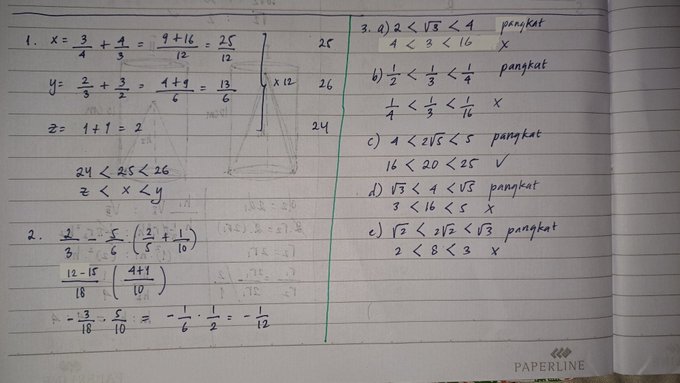 1. x = 3/4 + 4/3 = 9+16/12 = 25/12
25
y = 2/3 + 3/2 = 4+9/6 = 13/6
x 12
26
z = 1 + 1 = 2
24
24 < 25 < 26
z < x < y
2. 2/3 - 5/6 · (2/5 + 1/10)
12-15/18 (4+1/10)
- 3/18 · 5/10 = - 1/6 · 1/2 = - 1/12
3. a) 2 < √3 < 4 pangkat
4 < 3 < 16 x
b) 1/2 < 1/3 < 1/4 pangkat
1/4 < 1/3 < 1/16 x
c) 4 < 2√5 < 5 pangkat
16 < 20 < 25 ✓
d) √3 < 4 < √5 pangkat
3 < 16 < 5 x
e) √2 < 2√2 < √3 pangkat
2 < 8 < 3 x
PAPERLINE